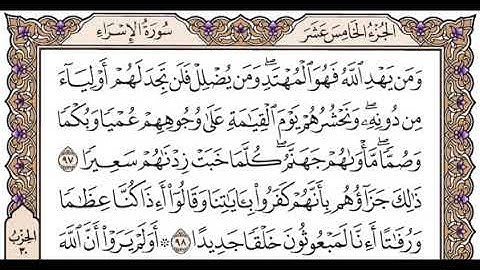 الجزء الخامس عشر
سورة الإسراء
وَمَن يَهْدِ ٱللَّهُ فَهُوَ ٱلْمُهْتَدِ ۖ وَمَن يُضْلِلْ فَلَن تَجِدَ لَهُمْ أَوْلِيَآءَ
مِن دُونِهِۦ ۖ وَنَحْشُرُهُمْ يَوْمَ ٱلْقِيَـٰمَةِ عَلَىٰ وُجُوهِهِمْ عُمْيًا وَبُكْمًا
وَصُمًّا ۖ مَّأْوَىٰهُمْ جَهَنَّمُ ۖ كُلَّمَا خَبَتْ زِدْنَـٰهُمْ سَعِيرًا ٩٧
ذَٰلِكَ جَزَآؤُهُم بِأَنَّهُمْ كَفَرُوا۟ بِـَٔايَـٰتِنَا وَقَالُوٓا۟ أَءِذَا كُنَّا عِظَـٰمًا
وَرُفَـٰتًا أَءِنَّا لَمَبْعُوثُونَ خَلْقًا جَدِيدًا ٩٨ ۞ أَوَلَمْ يَرَوْا۟ أَنَّ ٱللَّهَ
الحزب
٣٠